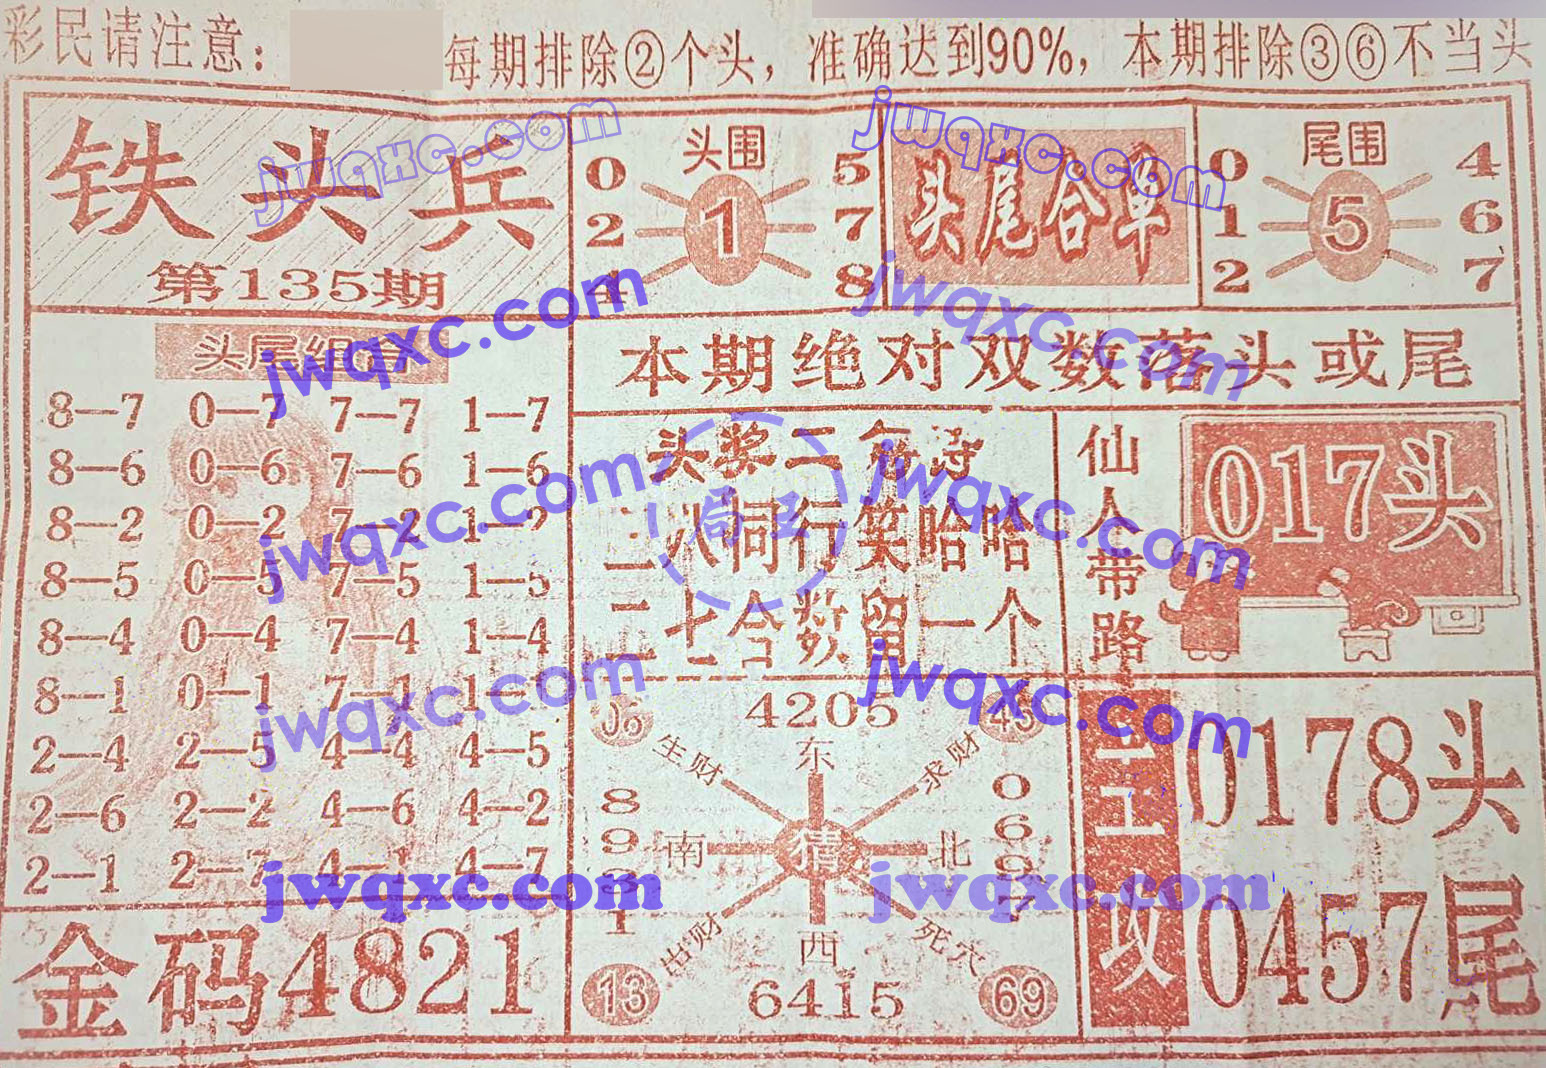 彩民请注意:
每期排除②个头，准确达到90%，本期排除③⑥不当头
铁头兵
第135期
头围
0 5
2 1 7
4 8
头尾合单
尾围
0 4
1 5 6
2 7
头尾组合
8—7 0—7 7—7 1—7
8—6 0—6 7—6 1—6
8—2 0—2 7—2 1—2
8—5 0—5 7—5 1—5
8—4 0—4 7—4 1—4
8—1 0—1 7—1
2—4 2—5 4—4 4—5
2—6 2—2 4—6 4—2
2—1 2—7 4—1 4—7
金码4821
本期绝对双数落头或尾
头奖二句诗
二八同行笑哈哈
二七合数留一个
仙人带路
017头
06 4205 45
生财 东 求财
8 0
9 6
南 猜 北
3 9
1 7
出财 西 死穴
13 6415 69
攻
0178头
0457尾
jwqxc.com
jwqxc.com
jwqxc.com
jwqxc.com
jwqxc.com
jwqxc.com
jwqxc.com
jwqxc.com
jwqxc.com
jwqxc.com
jwqxc.com